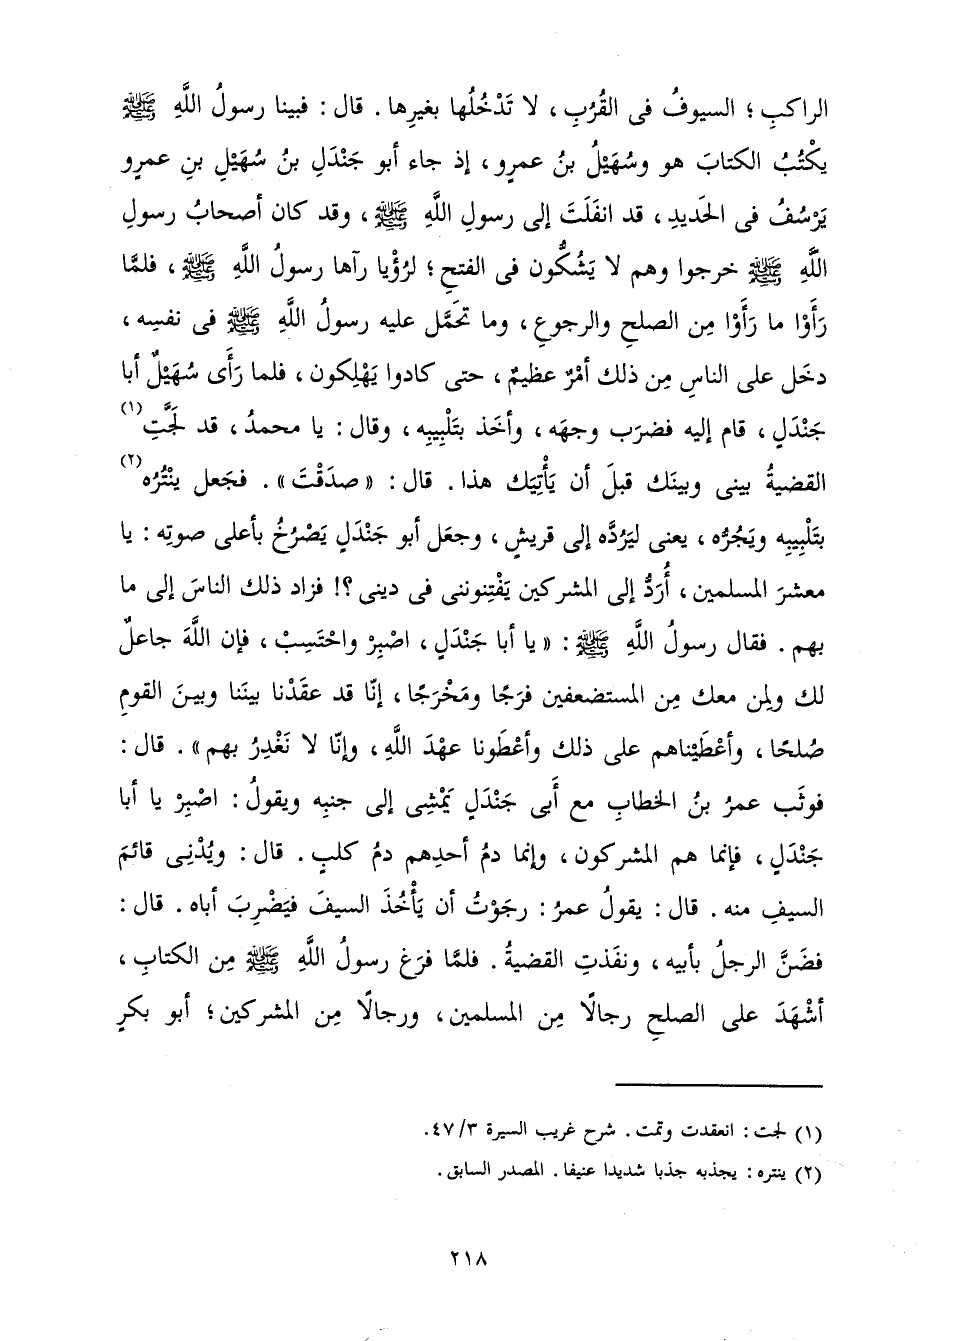 الراكبِ ؛ السيوفُ فى القُرُبِ ، لا تَدْخُلُها بغيرِها . قال : فبينا رسولُ اللَّهِ ﷺ
يكْتُبُ الكتابَ هو وسُهَيْلُ بنُ عمرٍو ، إذ جاء أبو جَنْدَلِ بنُ سُهَيْلِ بنِ عمرٍو
يَرْسُفُ فى الحَديدِ ، قد انفَلَتَ إلى رسولِ اللَّهِ ﷺ ، وقد كان أصحابُ رسولِ
اللَّهِ ﷺ خرجوا وهم لا يَشُكُّون فى الفتحِ ؛ لرُؤْيا رآها رسولُ اللَّهِ ﷺ ، فلمَّا
رَأَوْا ما رَأَوْا مِن الصلحِ والرجوعِ ، وما تَحَمَّل عليه رسولُ اللَّهِ ﷺ فى نفسِه ،
دخَل على الناسِ مِن ذلك أمْرٌ عظيمٌ ، حتى كادوا يَهْلِكون ، فلما رَأَى سُهَيْلٌ أبا
جَنْدَلٍ ، قام إليه فضرَب وجهَه ، وأخَذ بتَلْبِيبِه ، وقال : يا محمدُ ، قد لَجَّتِ(١)
القضيةُ بينى وبينَك قبلَ أن يَأْتِيَك هذا . قال : « صدَقْتَ » . فجَعل ينْتُرُه(٢)
بتَلْبِيبِه ويَجُرُّه ، يعنى ليَرُدَّه إلى قريشٍ ، وجعَل أبو جَنْدَلٍ يَصْرُخُ بأعلى صوتِه : يا
معشرَ المسلمين ، أُرَدُّ إلى المشركين يَفْتِنوننى فى دينى ؟! فزاد ذلك الناسَ إلى ما
بهم . فقال رسولُ اللَّهِ ﷺ : « يا أبا جَنْدَلٍ ، اصْبِرْ واحْتَسِبْ ، فإن اللَّهَ جاعلٌ
لك ولِمن معك مِن المستضعفين فرَجًا ومَخْرَجًا ، إنّا قد عقَدْنا بينَنا وبينَ القومِ
صُلحًا ، وأعْطَيْناهم على ذلك وأعْطَونا عهْدَ اللَّهِ ، وإنّا لا نَغْدِرُ بهم » . قال :
فوثَب عمرُ بنُ الخطابِ مع أَبى جَنْدَلٍ يَمْشِى إلى جنبِه ويقولُ : اصْبِرْ يا أبا
جَنْدَلٍ ، فإنما هم المشركون ، وإنما دمُ أحدِهم دمُ كلبٍ . قال : ويُدْنِى قائمَ
السيفِ منه . قال : يقولُ عمرُ : رجَوْتُ أن يَأْخُذَ السيفَ فيَضْرِبَ أباه . قال :
فضَنَّ الرجلُ بأبيه ، ونفَذتِ القضيةُ . فلمَّا فرَغ رسولُ اللَّهِ ﷺ مِن الكتابِ ،
أشْهَدَ على الصلحِ رجالًا مِن المسلمين ، ورجالًا مِن المشركين ؛ أبو بكرٍ
(١) لجت : انعقدت وتمت . شرح غريب السيرة ٤٧/٣.
(٢) ينتره : يجذبه جذبا شديدا عنيفا . المصدر السابق .
٢١٨